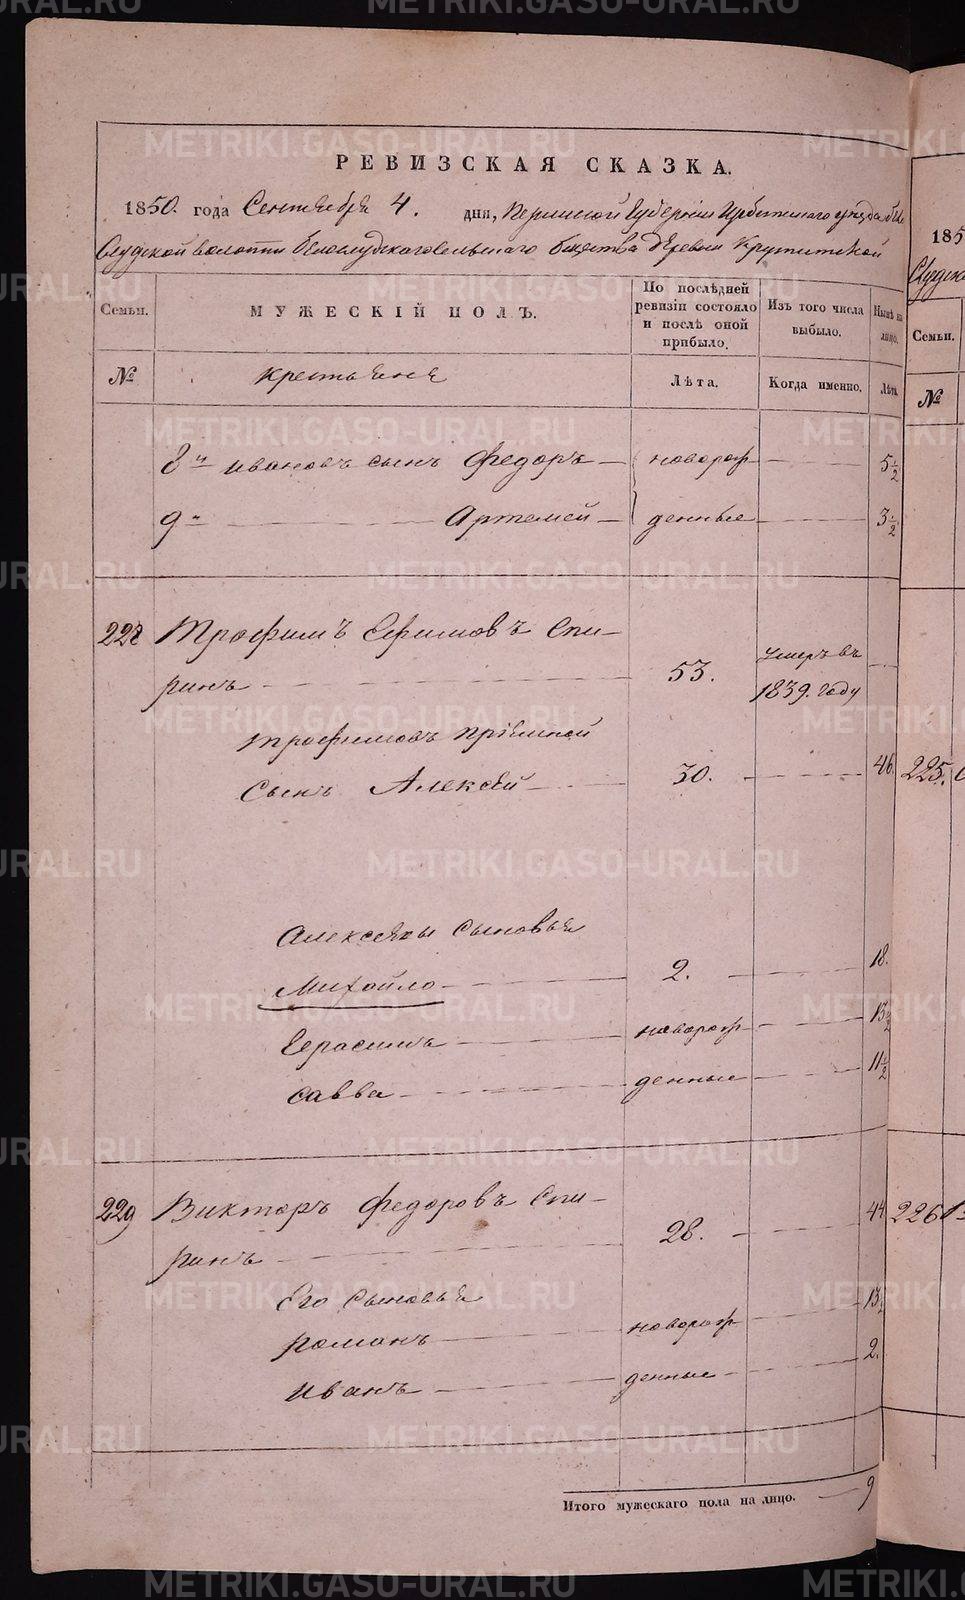 РЕВИЗСКАЯ СКАЗКА.
1850. года Сентября 4. дня, Пермской Губернии Ирбитскаго уезда Бѣло
Слудской волости Белослудскаго сельскаго общества Деревни Крутитской
Семьи. МУЖЕСКІЙ ПОЛЪ. По послѣдней ревизіи состояло и послѣ оной прибыло. Изъ того числа выбыло. Нынѣ на лицо.
№ крестьяне Лѣта. Когда именно. Лѣта.
8й ивановъ сынъ Федоръ новорож 5½
9й Артемей денные 3½
228 Трофимъ Ефимовъ Спи-
ринъ 53. умеръ въ 1839. году
трофимовъ пріемной
сынъ Алексѣй 30. 46.
Алексѣевы сыновья
Михайло 2. 18.
Герасимъ новорож 13½
Савва денные 11½
229 Викторъ Федоровъ Спи-
ринъ 28. 44
Его сыновья
романъ новорож 13½
иванъ денные 2.
Итого мужескаго пола на лицо. 9
185
Слудск
Семьи.
№
225.
226
METRIKI.GASO-URAL.RU